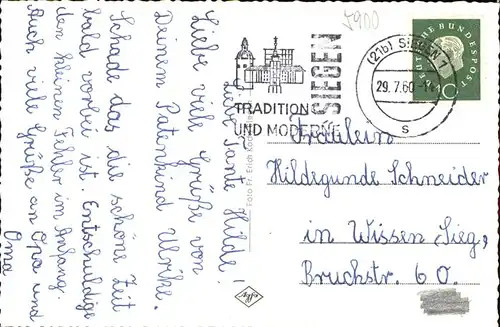 Liebe Tante Hilde!
Liebe viele Grüße von
Deinem Patenkind Ulrike.
Schade das die schöne Zeit
bald vorbei ist. Entschuldige
den kleinen Fehler im Anfang.
Auch viele Grüße an Opa und
Oma
7900
SIEGEN
TRADITION
UND MODERNE
(21b) SIEGEN 1
29.7.60
s
DEUTSCHE BUNDESPOST
10
Foto Fr. Erich
Agfa
Fräulein
Hildegunde Schneider
in Wissen Sieg,
Bruchstr. 60.